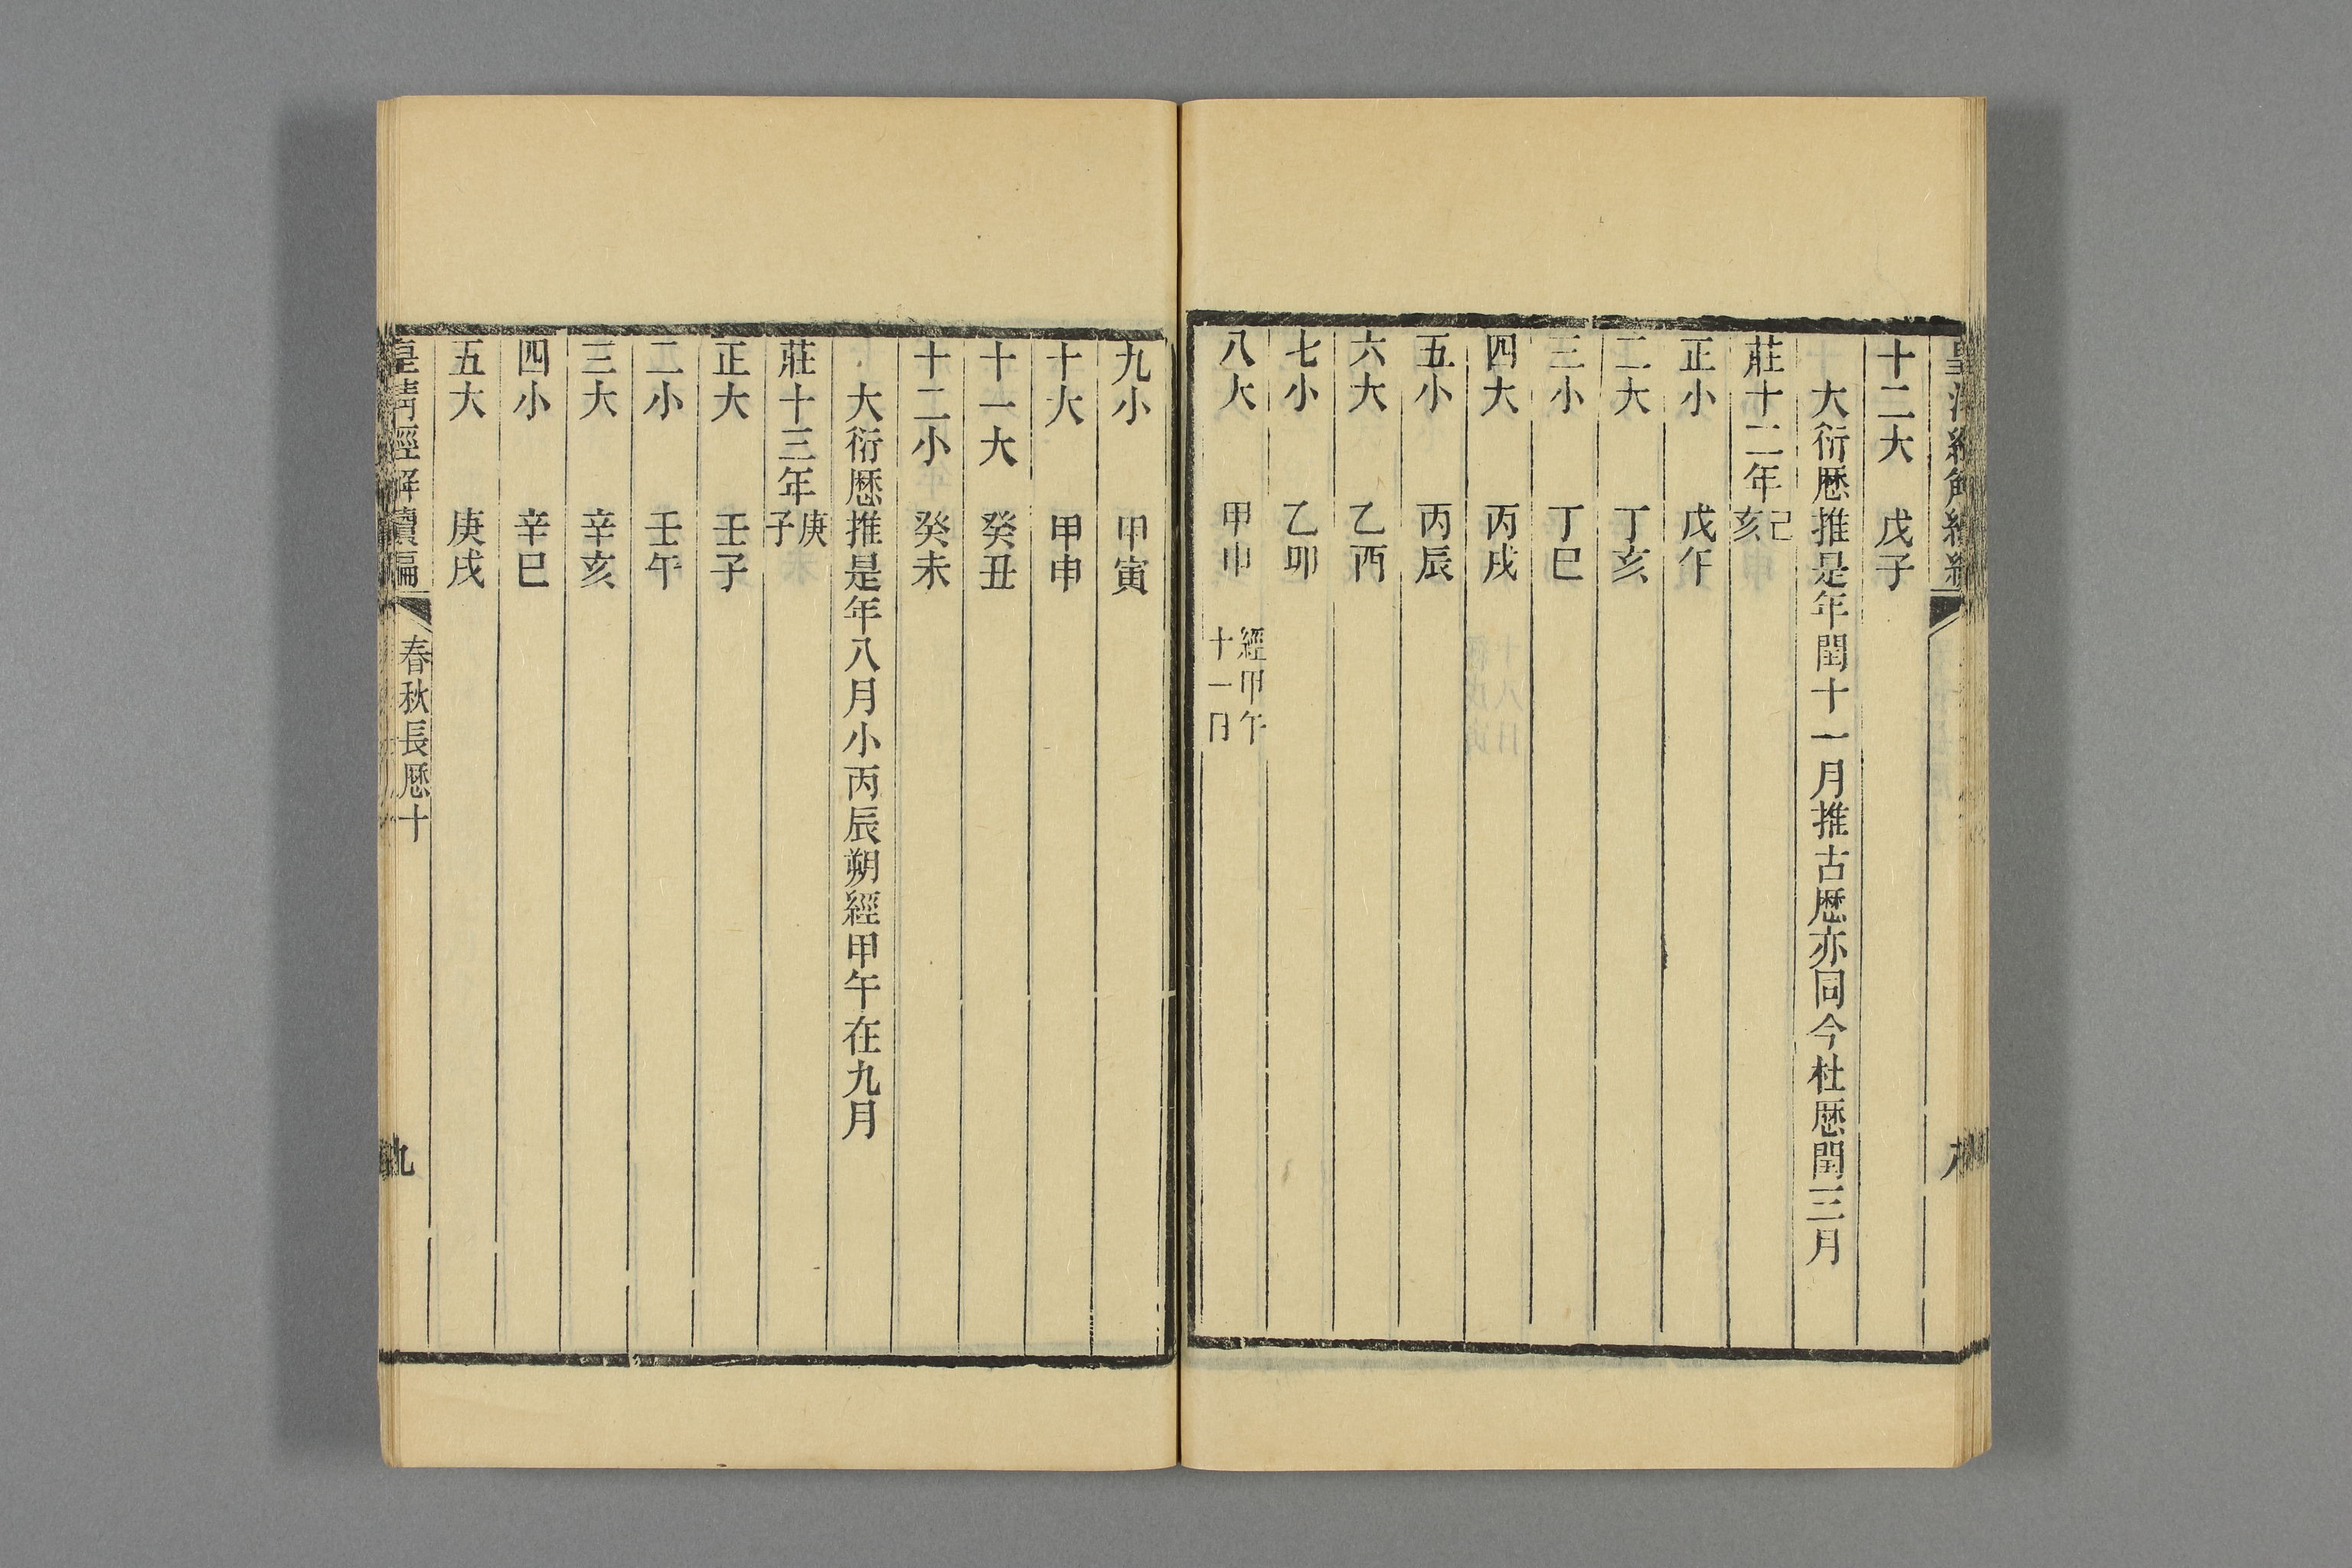 十二大　戊子
大衍厯推是年閏十一月推古厯亦同今杜厯閏三月
莊十二年己亥
正小　戊午
二大　丁亥
三小　丁巳
四大　丙戌
五小　丙辰
六大　乙酉
七小　乙卯
八大　甲申　經甲午十一日
九小　甲寅
十大　甲申
十一大　癸丑
十二小　癸未
大衍厯推是年八月小丙辰朔經甲午在九月
莊十三年庚子
正大　壬子
二小　壬午
三大　辛亥
四小　辛巳
五大　庚戌
皇清經解續編　春秋長厯十　九